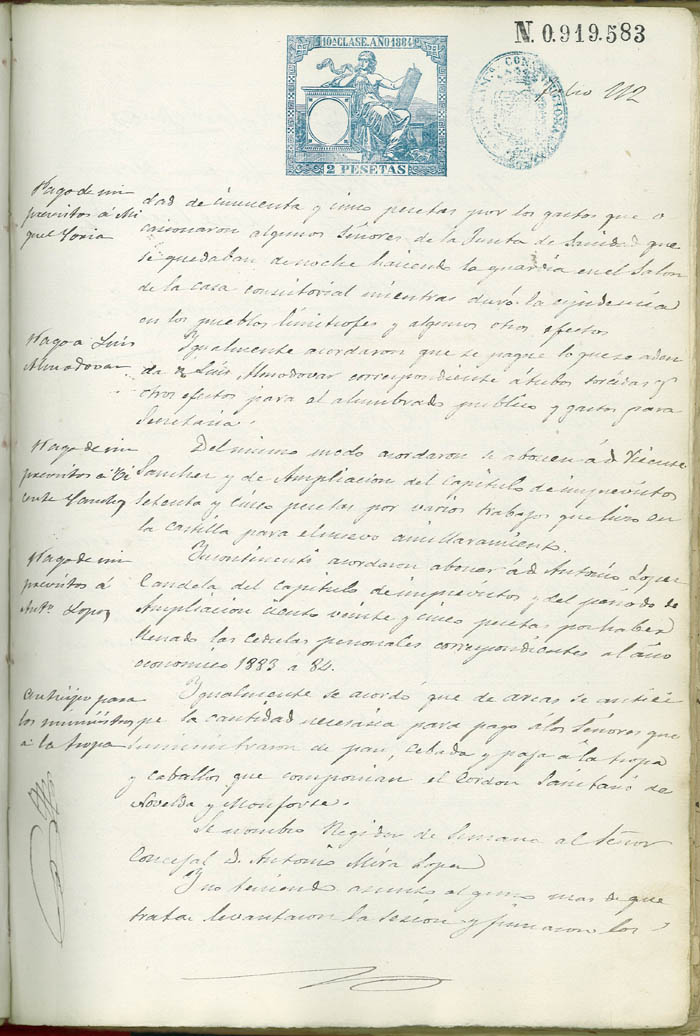 N. 0.919.583
10ª CLASE. AÑO 1884
2 PESETAS
folio 112
Pago de im
previstos á Mi
guel Soria
dad de cincuenta y cinco pesetas por los gastos que o
casionaron algunos Señores de la Junta de Sanidad que
se quedaban de noche haciendo la guardia en el Salon
de la casa consistorial mientras duró la epidemia
en los pueblos limitrofes y algunos otros efectos
Pago a Luis
Almodovar
Igualmente acordaron que se pague lo que se aden
da a Luis Almodovar correspondiente á tubos torcidas y
otros efectos para el alumbrado publico y gastos para
Secretaria.
Pago de im
previstos á Vi
cente Sanchez
Del mismo modo acordaron se abonen á D. Vicente
Sanchez y de Ampliacion del capitulo de imprevistos
setenta y cinco pesetas por varios trabajos que hizo en
la Castilla para el nuevo amillaramiento.
Pago de im
previstos á
Antº Lopez
Incontinenti acordaron abonar á D. Antonio Lopez
Candela del capitulo de imprevistos y del periodo de
Ampliacion ciento veinte y cinco pesetas por haber
llenado las cedulas personales correspondientes al año
economico 1883 á 84.
Anticipo para
los suministros
á la tropa
Igualmente se acordó que de arcas se antici
pe la cantidad necesaria para pago a los Señores que
suministraron de pan, cebada y paja á la tropa
y caballos que componian el Cordon Sanitario de
Novelda y Monforte.
Se nombró Regidor de Semana al Señor
Concejal D. Antonio Mira Lopez
Y no teniendo asunto alguno mas de que
tratar levantaron la sesión y firmaron los